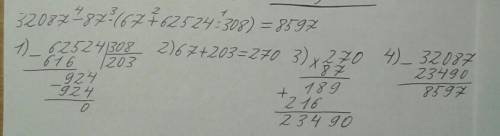 4 3 2 1
32087-87·(67+62524:308)=8597
1) -62524|308
616 |203
-924
924
0
2) 67+203=270
3) ×270
87
+189
216
23490
4) -32087
23490
8597